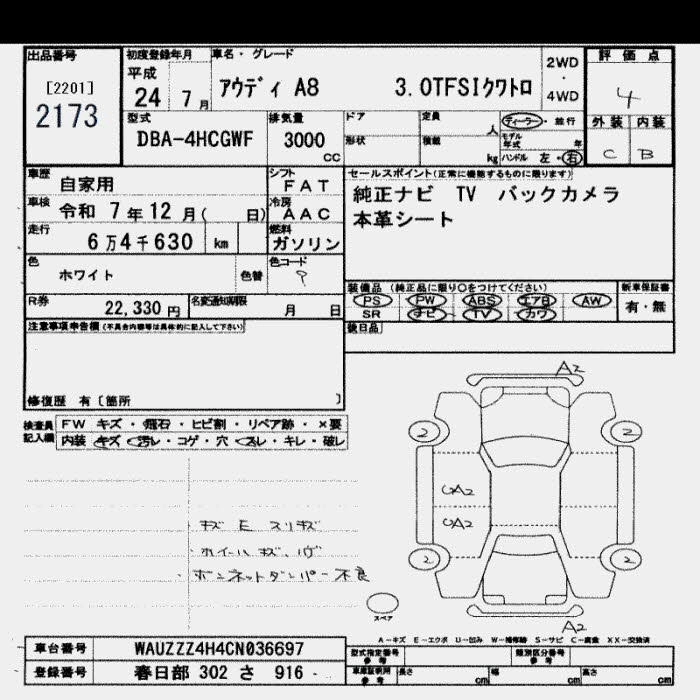 出品番号
[2201]
2173
初度登録年月
平成
24 7月
車名・グレード
アウディ A8 3.0TFSIクワトロ
2WD
・
4WD
評価点
4
外装 内装
C B
型式
DBA-4HCGWF
排気量
3000
cc
ドア
定員
人
形状
積載
kg
ディーラー・並行
モデル年式 年
ハンドル 左・右
車歴
自家用
シフト
FAT
車検
令和 7年12月( 日)
冷房
AAC
走行
6万4千630 km
燃料
ガソリン
色
ホワイト
色替
色コード
R券
22,330円
名変通知期限
月 日
セールスポイント(正常に機能するものに限ります)
純正ナビ TV バックカメラ
本革シート
装備品(純正品に限り○をつけてください)
PS PW ABS エアB AW
SR ナビ TV カワ
新車保証書
有・無
後日品
注意事項申告欄(不具合内容等は具体的に記入して下さい)
修復歴 有〔箇所 〕
検査員
記入欄
FW キズ・飛石・ヒビ割・リペア跡・×要
内装 キズ・汚レ・コゲ・穴・スレ・キレ・破レ
・キズ E スリキズ
・ホイールキズ、
・ボンネットダンパー不良
A2
2
2
UA2
UA2
2
2
スペア
A2
A-キズ E-エクボ U-凹み W-補修跡 S-サビ C-腐食 XX-交換済
車台番号
WAUZZZ4H4CN036697
登録番号
春日部 302 さ 916
型式指定番号
参考
類別区分番号
参考
車庫証明用
参考
長さ cm 幅 cm 高さ cm